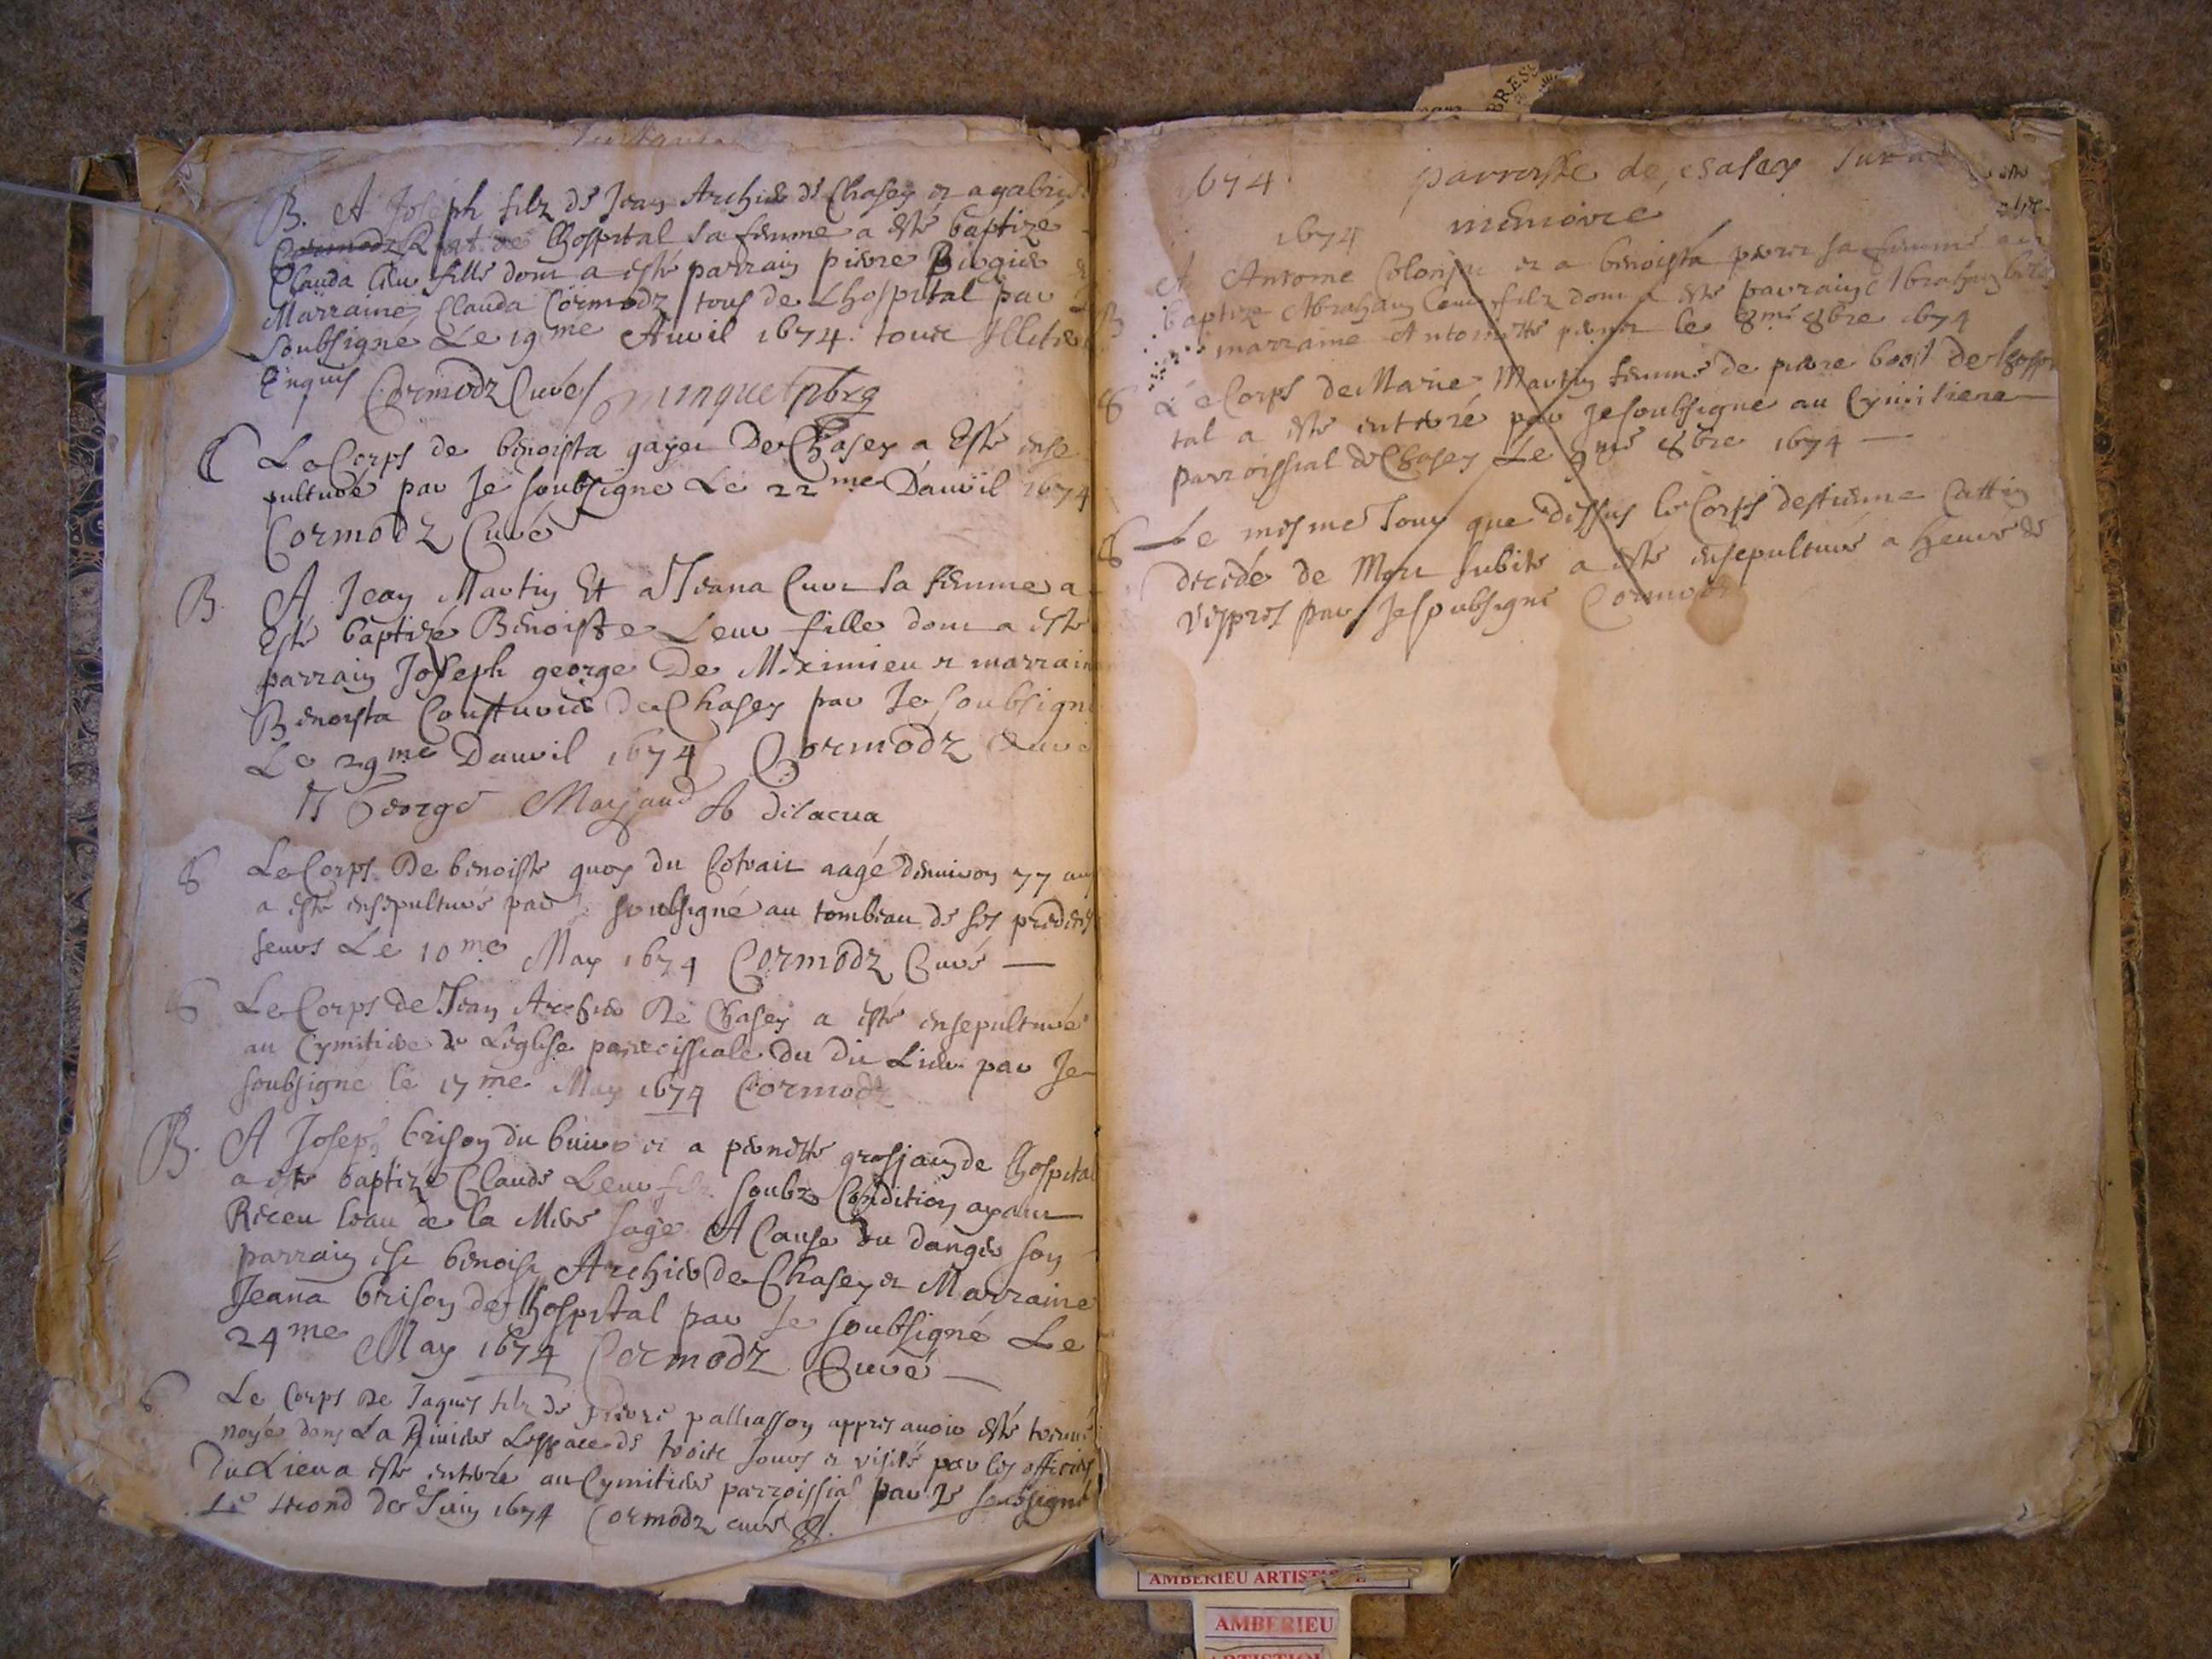 B. A Joseph filz de Jean Archier de Chasey et a gabrie
Lhospital sa femme a esté baptizé
Clauda leur fille dont a esté parrain pierre
Marraine Clauda Cormodz tous de Lhospital par
soubsigné Le 19me Auril 1674. tous Illeteré
Enquis Cormodz Curé minguet pbre
Le Corps de benoista gayet De Chasey a Esté inse
pulturé par Je soubsigné Le 22me Dauril 1674
Cormodz Curé
B. A Jean Martin Et a Jeana Curt sa femme a
Esté baptizé Benoiste Leur fille dont a esté
parrain Joseph george De Meximieu et marraine
Benoista Cousturier de Chasey par Je soubsigné
Le 29me Dauril 1674 Cormodz Curé
J George
S Le Corps De benoiste quoy du Cotrait aagé denuiron 77 ans
a esté insepulturé par Je soubsigné au tombeau de ses predeces
seurs Le 10me May 1674 Cormodz Curé
S Le Corps de Jean Archier De Chasey a esté insepulturé
au Cymitiere de Leglise parroissiale du dit Lieu par Je
soubsigné le 17me May 1674 Cormodz
B. A Joseph brison du buire et a pernette grosjean de Lhospital
a este baptizé Claude Leur filz soubz Condition ayant
Receu leau de la Mere sage A Cause du danger son
parrain est benoist Archier de Chasey et Marraine
Jeana brison de Lhospital par Je soubsigné Le
24me May 1674 Cormodz Curé
S Le Corps De Jaques filz de pierre palliasson appres auoir esté trouué
noyé dans La Riuiere Lespace de troite Jours et visité par les officiers
Du Lieu a esté enterré au Cymitiere parroissial par Je soubsigné
Le second de Juin 1674 Cormodz curé
1674 parroisse de Chasey sur
1674 memoire
A Antoine et a benoista perret sa femme a
B baptizé Abraham leur filz dont a esté parrain Abraham
marraine Antoinette perret le 8me 8bre 1674
S Le Corps de Marie Martin femme de pierre bost de Lhospi
tal a esté enterré par Je soubsigné au Cymitiere
parroissial de Chasey Le 9me 8bre 1674
S Le mesme Jour que dessus le Corps destienne Cattin
decedé de Mort subite a esté insepulturé a heure de
vespres par Je soubsigné Cormodz
BRESS
AMBERIEU ARTISTI
AMBERIEU
ARTISTIQU